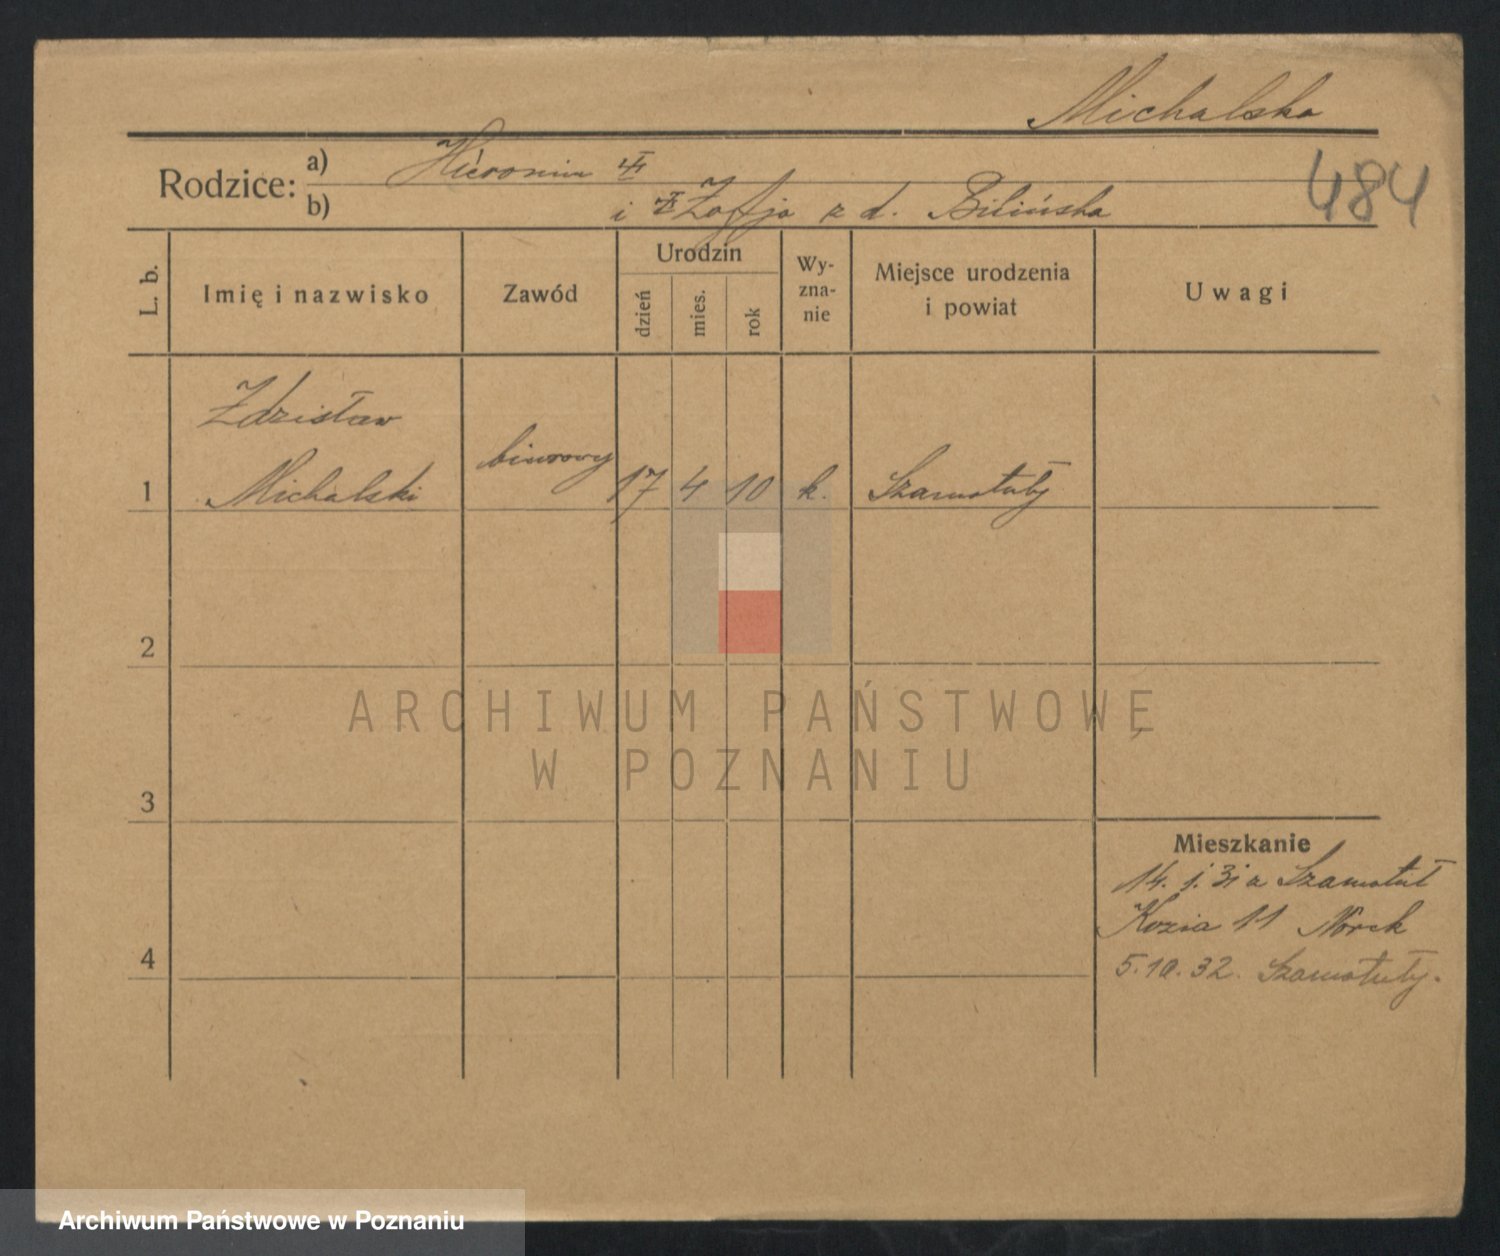 Michalska
484
Rodzice: a) Hieronim
b) i Zofja z d. Bilińska
L. b.
Imię i nazwisko
Zawód
Urodzin
dzień
mies.
rok
Wy-
zna-
nie
Miejsce urodzenia
i powiat
Uwagi
Zdzisław
1 Michalski biurowy 17 4 10 k. Szamotuły
2
ARCHIWUM PAŃSTWOWE
W POZNANIU
3
Mieszkanie
14. 1. 31 z Szamotuł
Kozia 11 Norek
4
5.10.32. Szamotuły.
Archiwum Państwowe w Poznaniu